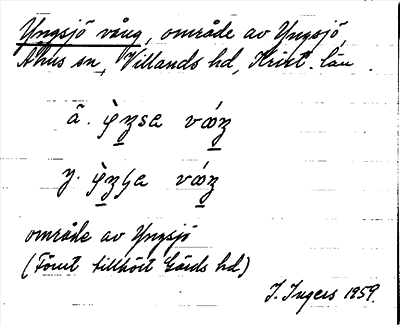 Yngsjö vång, område av Yngsjö,
Åhus sn, Villands hd, Krist. län.
ä.
y.
område av Yngsjö
(Förut tillhört Gärds hd)
I. Ingers 1959.